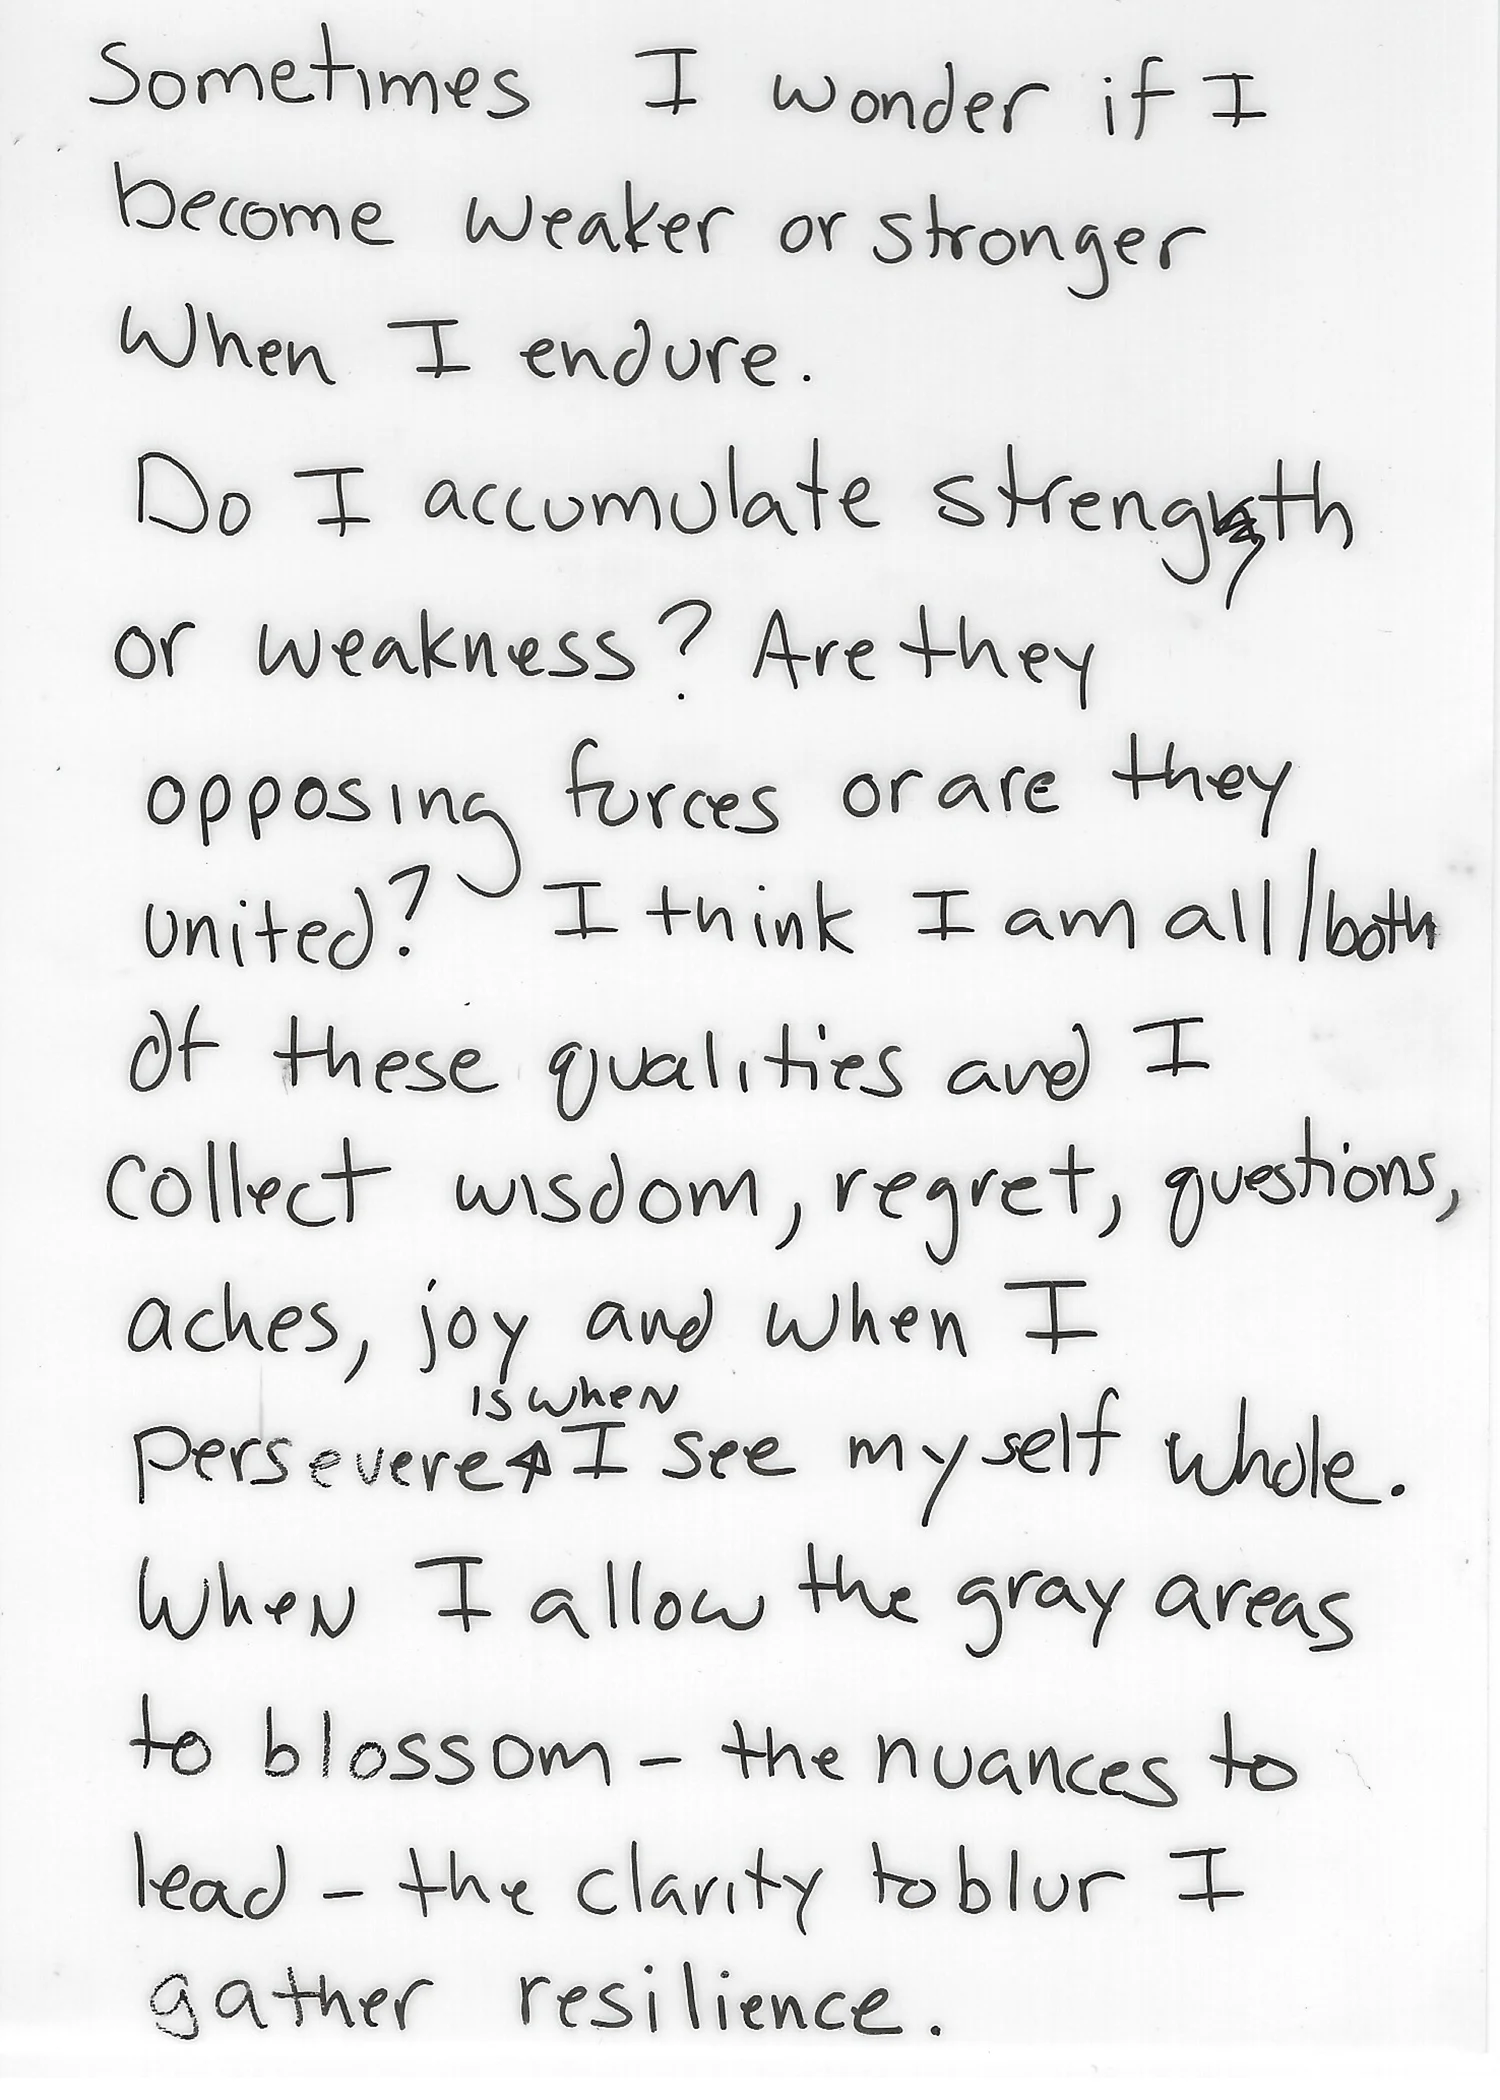 Sometimes I wonder if I
become weaker or stronger
when I endure.
Do I accumulate strength
or weakness? Are they
opposing forces or are they
united? I think I am all/both
of these qualities and I
collect wisdom, regret, questions,
aches, joy and when I
is when
persevere I see myself whole.
When I allow the gray areas
to blossom - the nuances to
lead - the clarity to blur I
gather resilience.